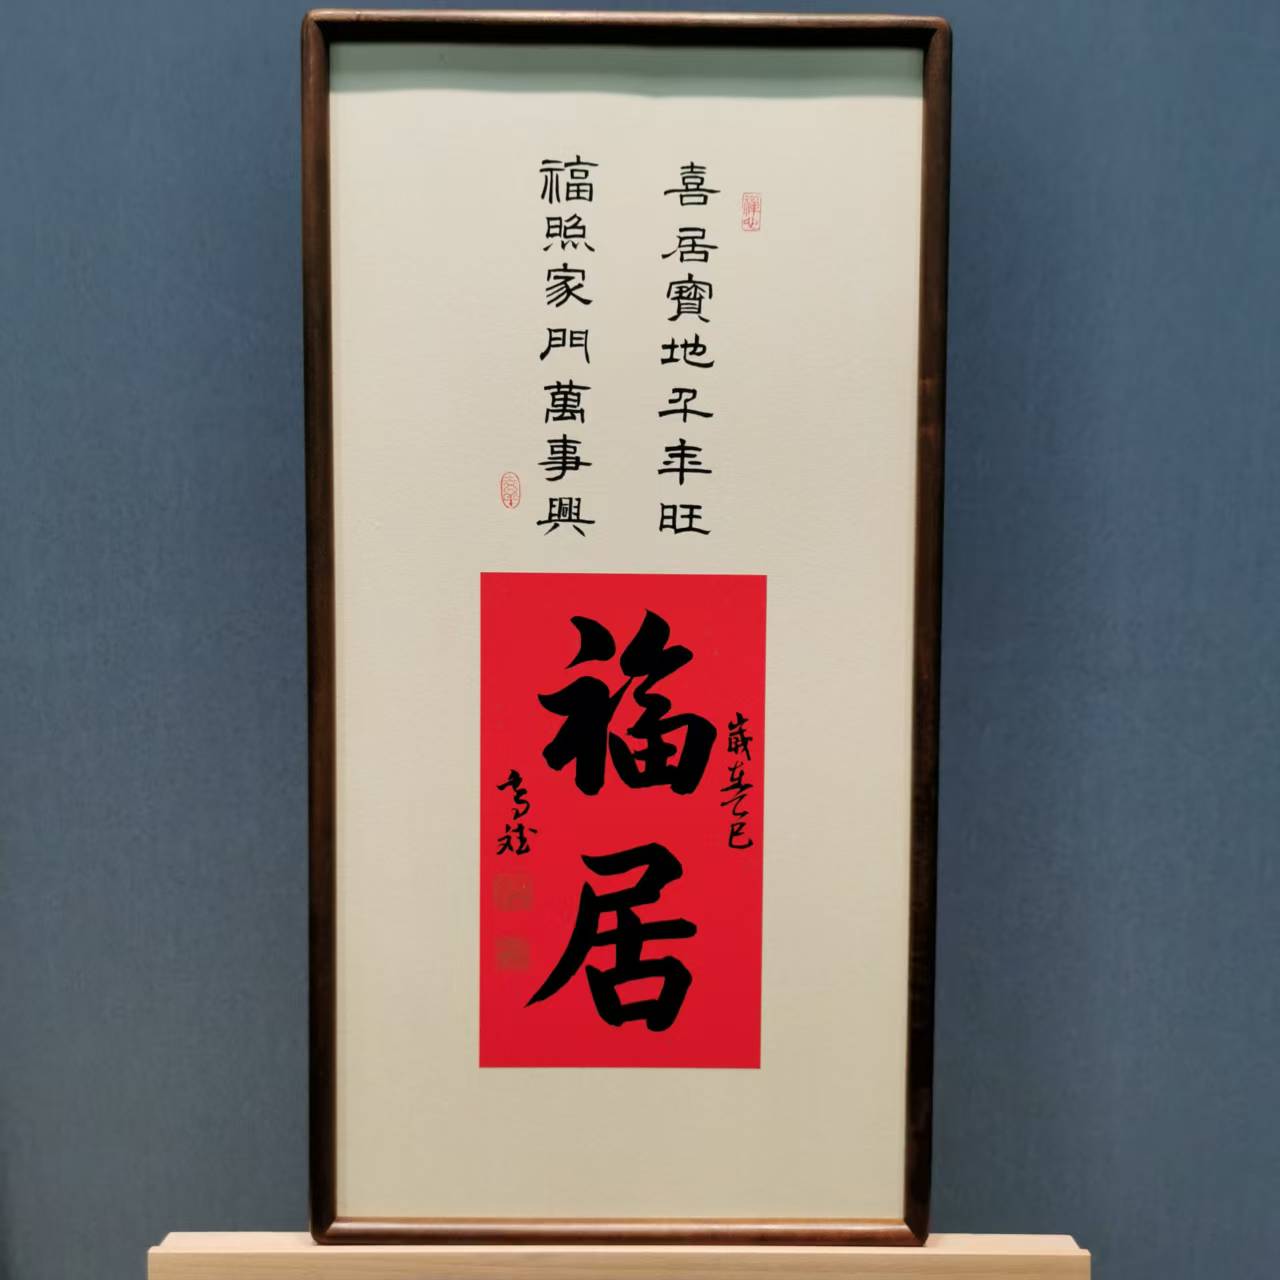 喜居寶地千年旺
福照家門萬事興
歲在乙巳
福居